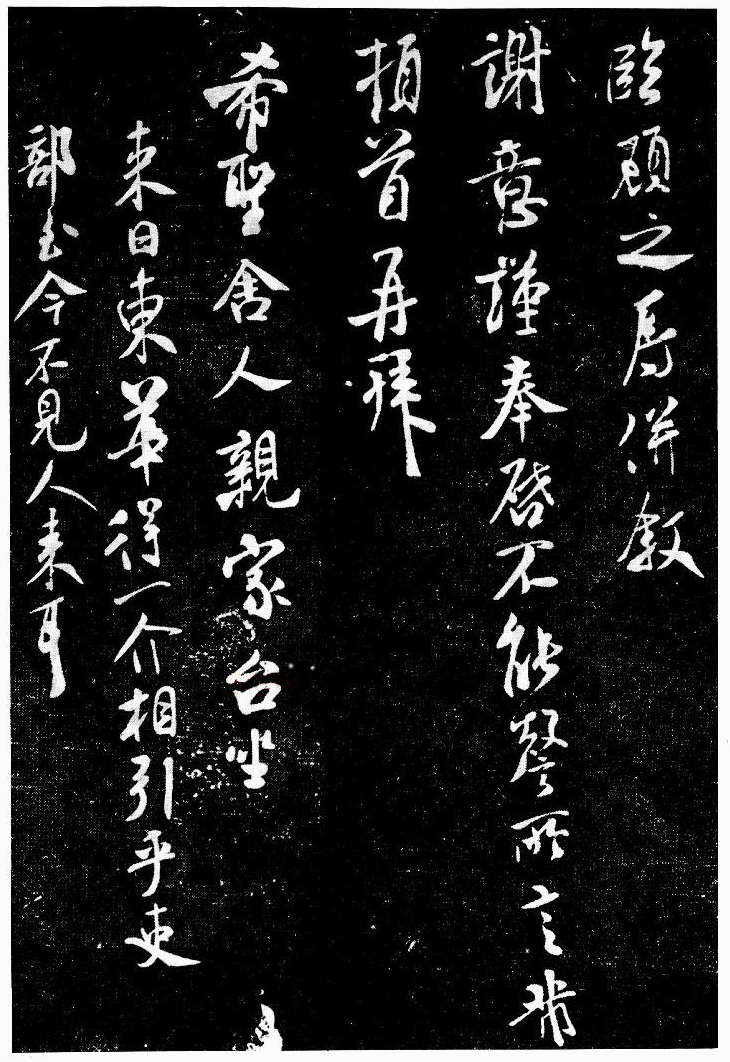 臨顧之辱併敘
謝意謹奉啓不能罄所言
頓首再拜
希聖舍人親家台坐
來日東華得一介相引乎吏
部至今不見人來耳